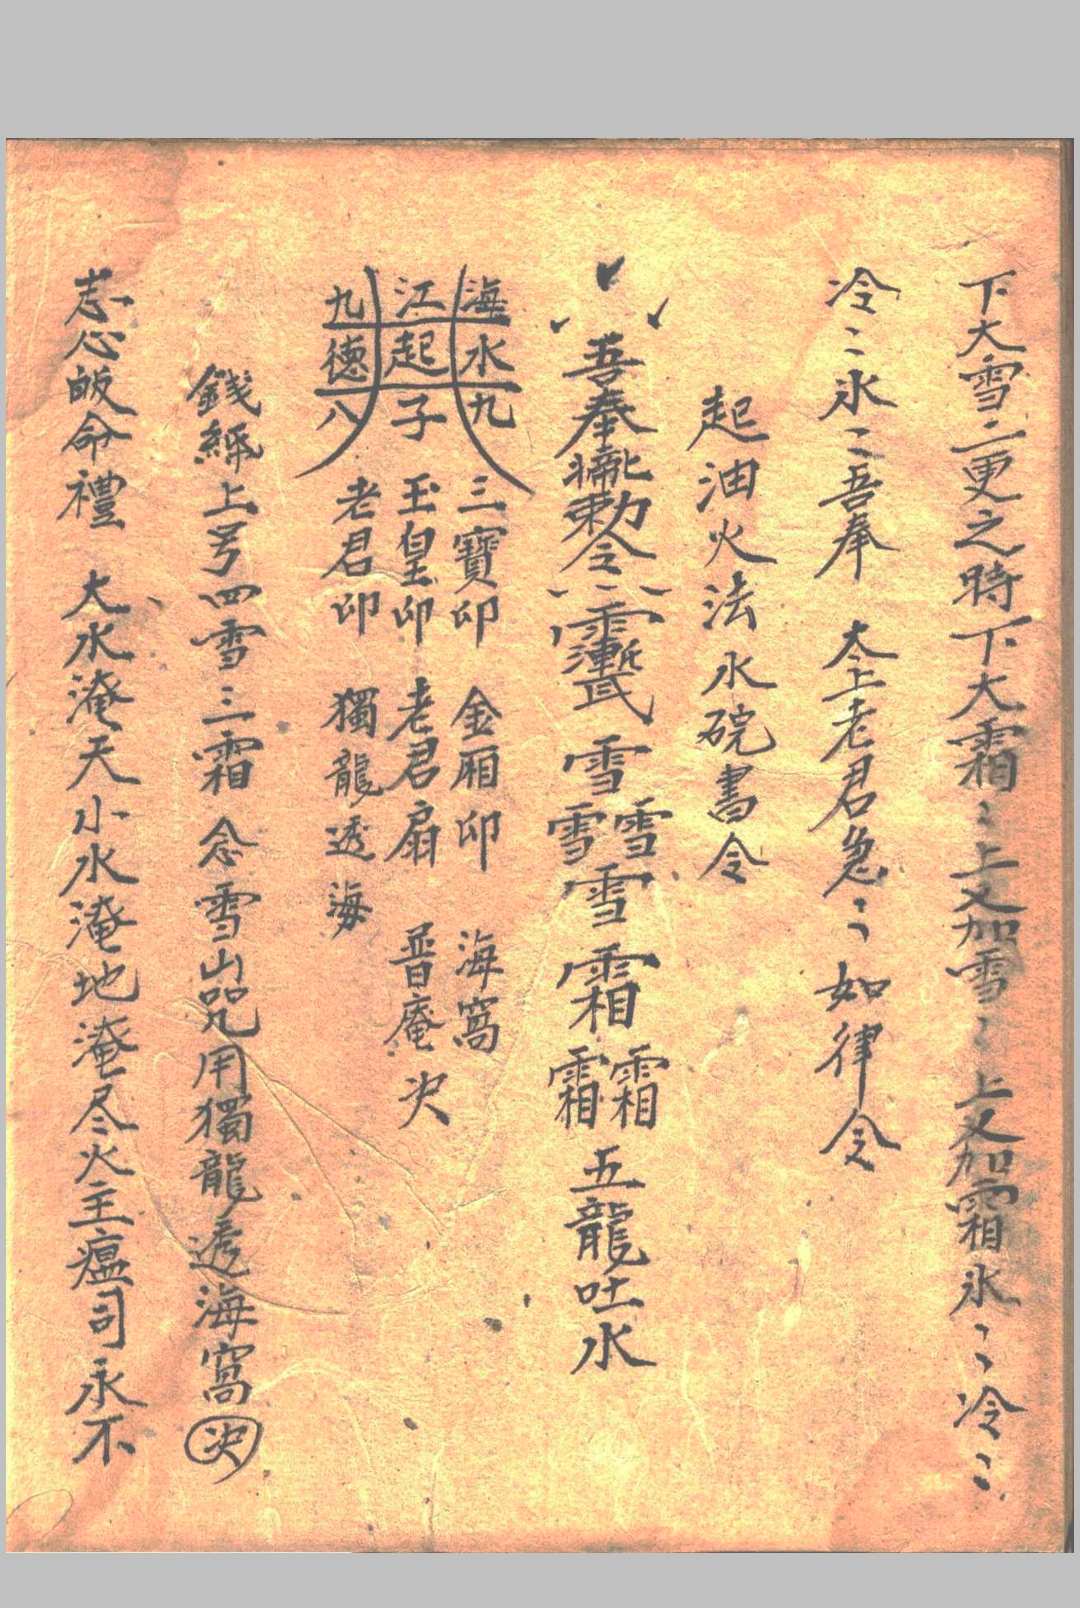 下大雪二更之時下大霜〻上又加雪〻上又加霜氷〻冷〻
冷〻氷〻吾奉 太上老君急〻如律令
起油火法水碗書令
吾奉勅令 雪雪雪雪霜霜霜五龍吐水
海水九 三寶印 金厢印 海窩
江起子 玉皇印 老君扇 普庵决
九德八 老君印 獨龍透海
錢紙上号四雪三霜 念雪山咒用獨龍透海窩决
志心皈命禮 大水淹天小水淹地淹尽火主瘟司永不